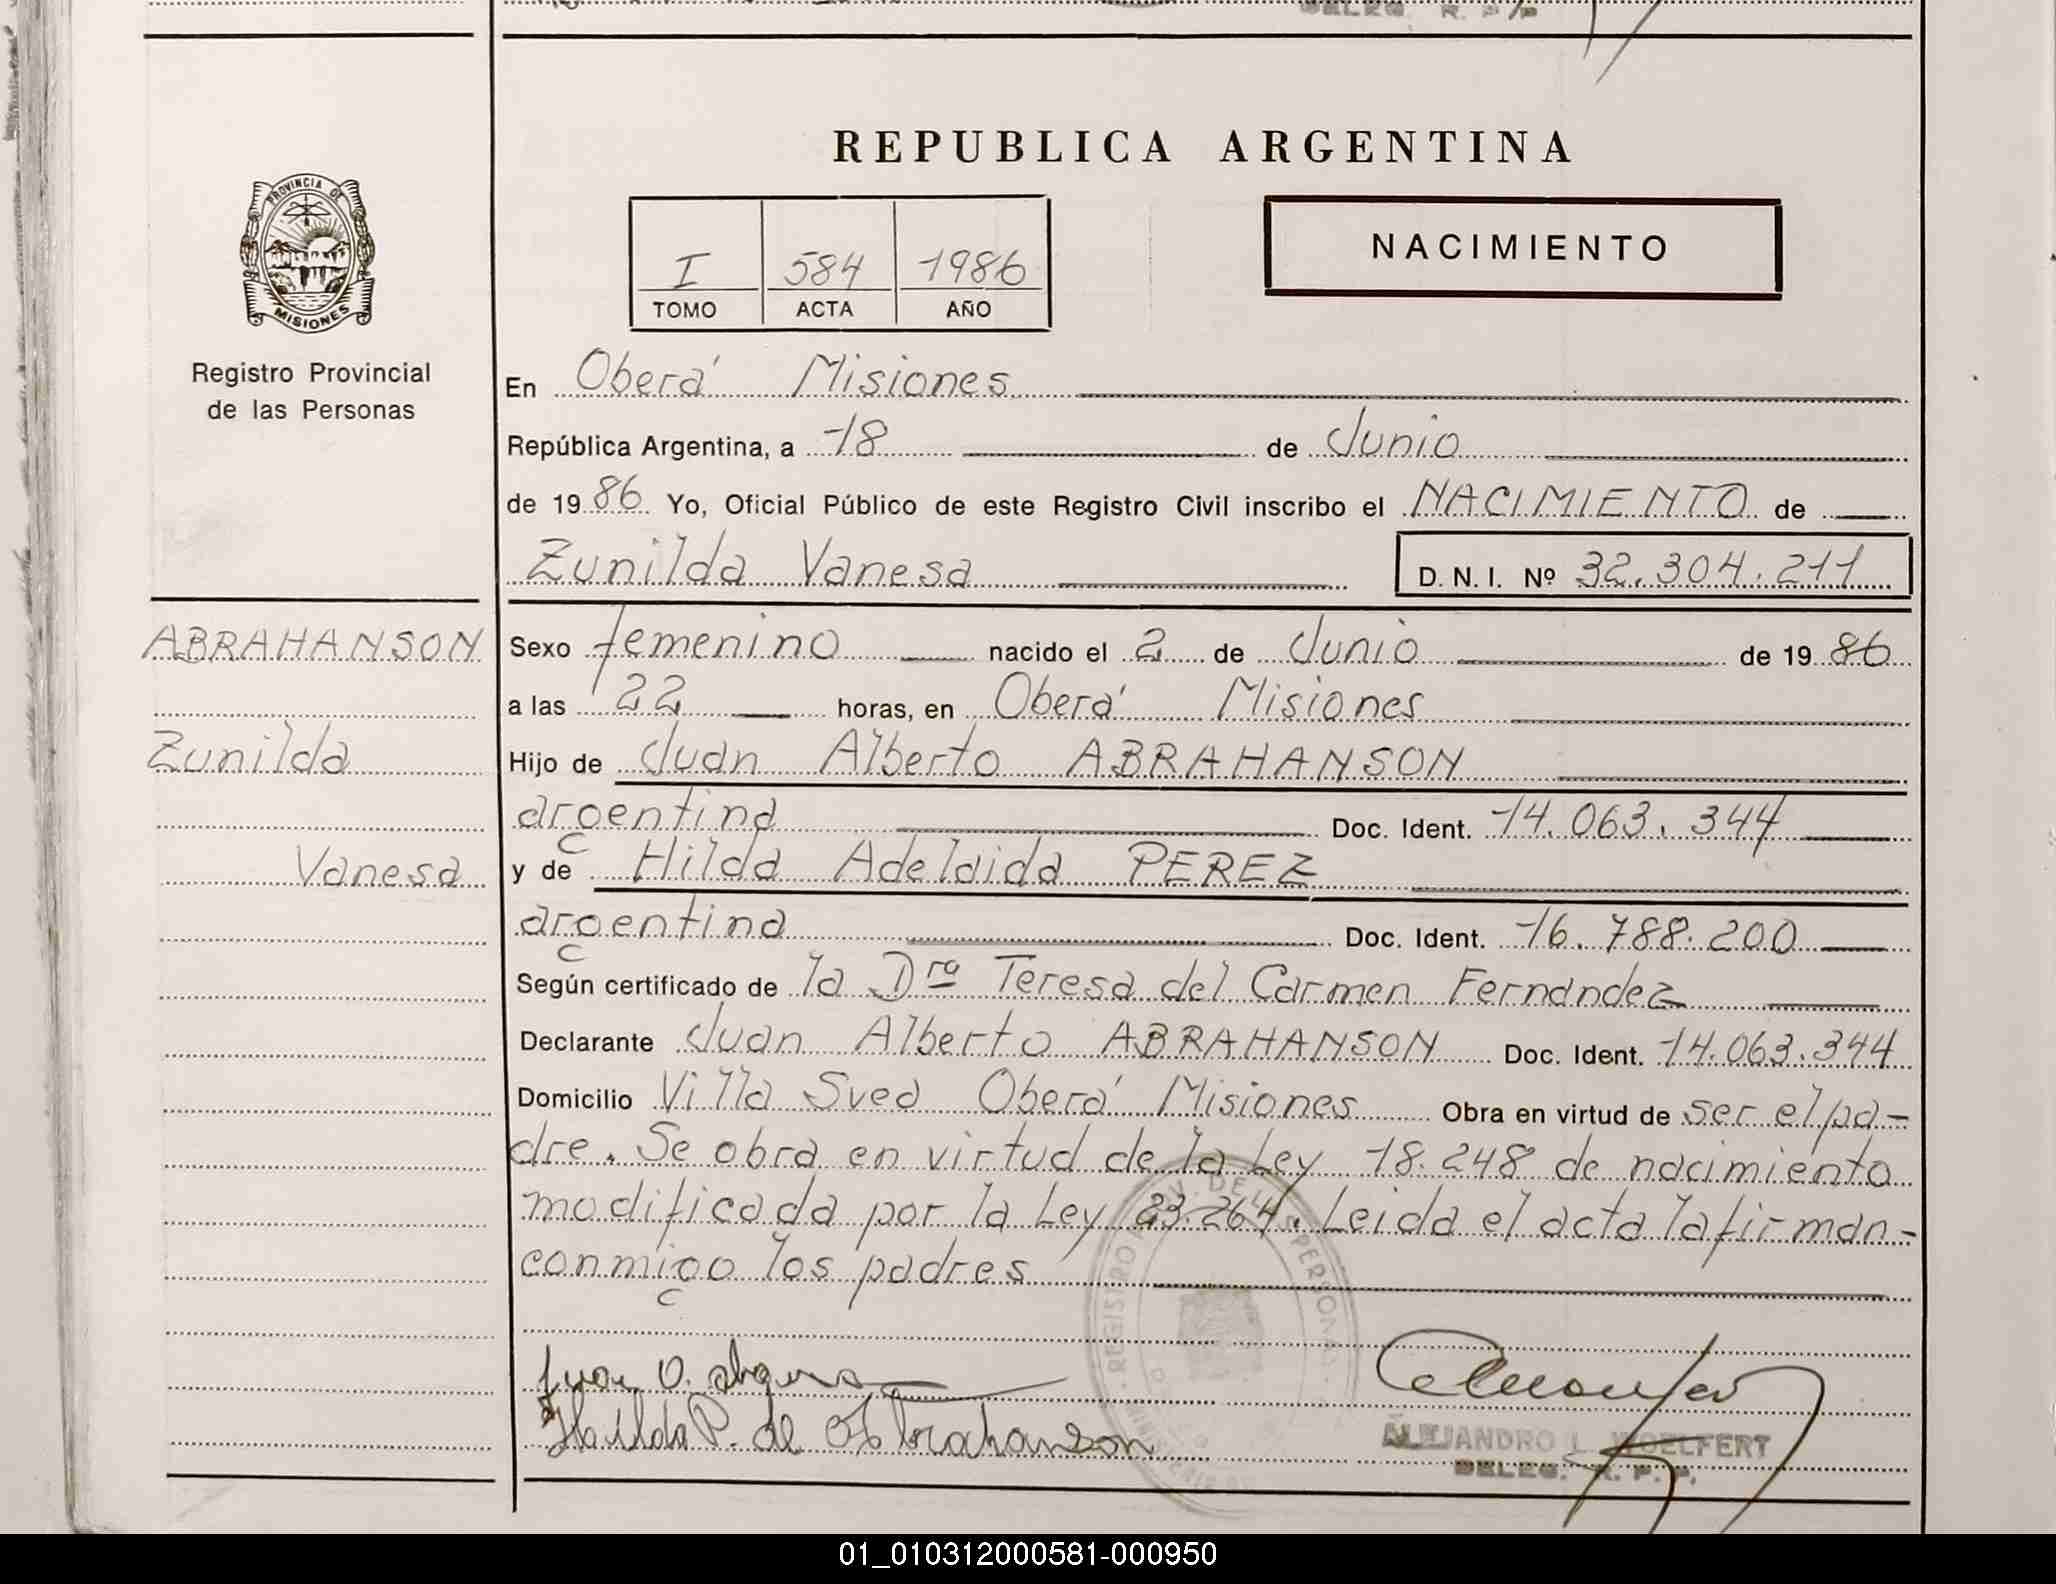 REPUBLICA ARGENTINA
PROVINCIA DE
MISIONES
Registro Provincial
de las Personas
I 584 1986
TOMO ACTA AÑO
NACIMIENTO
En Oberá Misiones
República Argentina, a 18 de Junio
de 1986 Yo, Oficial Público de este Registro Civil inscribo el NACIMIENTO de
Zunilda Vanesa D. N. I. Nº 32.304.211
ABRAHANSON
Zunilda
Vanesa
Sexo femenino nacido el 2 de Junio de 1986
a las 22 horas, en Oberá Misiones
Hijo de Juan Alberto ABRAHANSON
argentina Doc. Ident. 14.063.344
y de Hilda Adelaida PEREZ
argentina Doc. Ident. 16.788.200
Según certificado de la Dra Teresa del Carmen Fernandez
Declarante Juan Alberto ABRAHANSON Doc. Ident. 14.063.344
Domicilio Villa Sved Oberá Misiones Obra en virtud de ser el pa-
dre. Se obra en virtud de la Ley 18.248 de nacimiento
modificada por la Ley 23.264. Leida el acta la firman-
conmigo los padres
Hilda P. de Abrahanson
ALEJANDRO L. WOELFERT
DELEG. R. P. P.
01_010312000581-000950